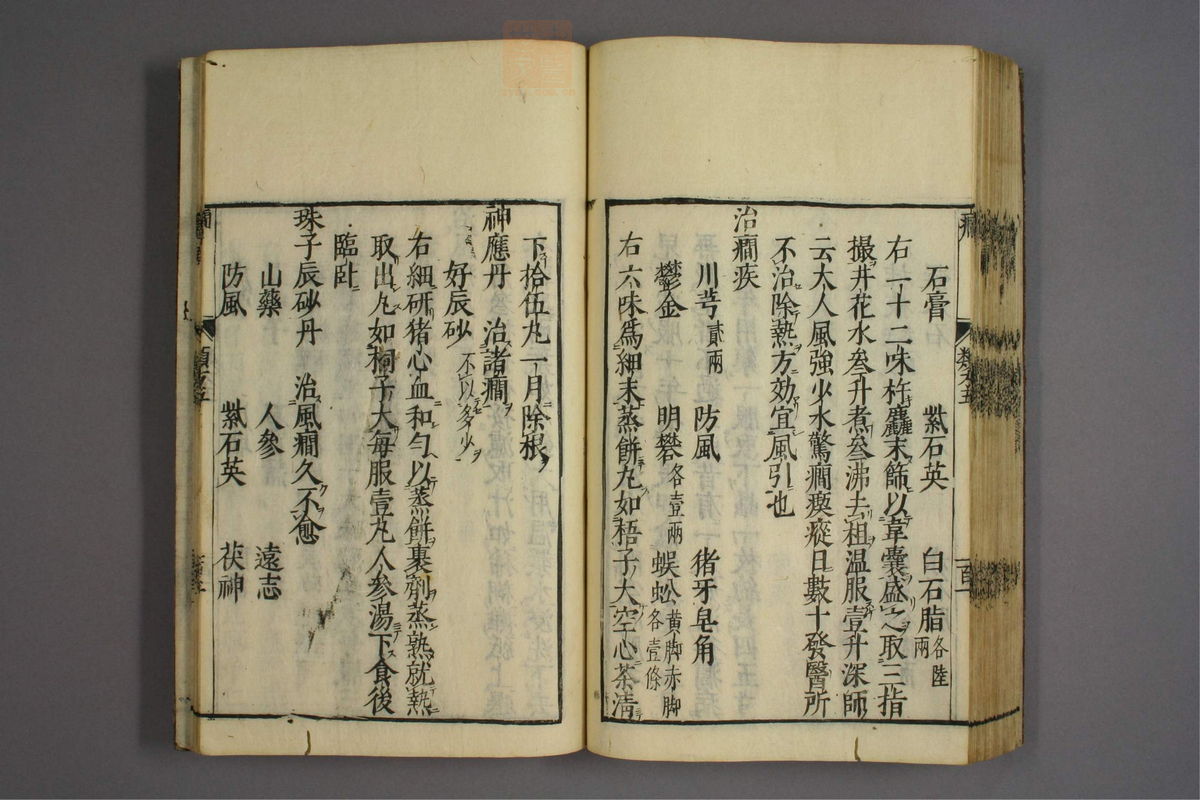 石膏 紫石英 白石脂各陸兩
右一十二味杵麄末篩以韋囊盛之取三指
撮井花水叁升煮叁沸去柤温服壹升深師
云大人風強少水驚癇瘈瘲日數十發醫所
不治除熱方効宜風引也
治癇疾
川芎貳兩 防風 猪牙皂角
鬱金 明礬各壹兩 蜈蚣黄脚赤脚各壹條
右六味爲細末蒸餅丸如梧子大空心茶清
下拾伍丸一月除根
神應丹 治諸癇
好辰砂不以多少
右細研猪心血和勻以蒸餅裹劑蒸熟就熱
取出丸如桐子大每服壹丸人參湯下食後
臨卧
珠子辰砂丹 治風癇久不愈
山藥 人參 遠志
防風 紫石英 茯神